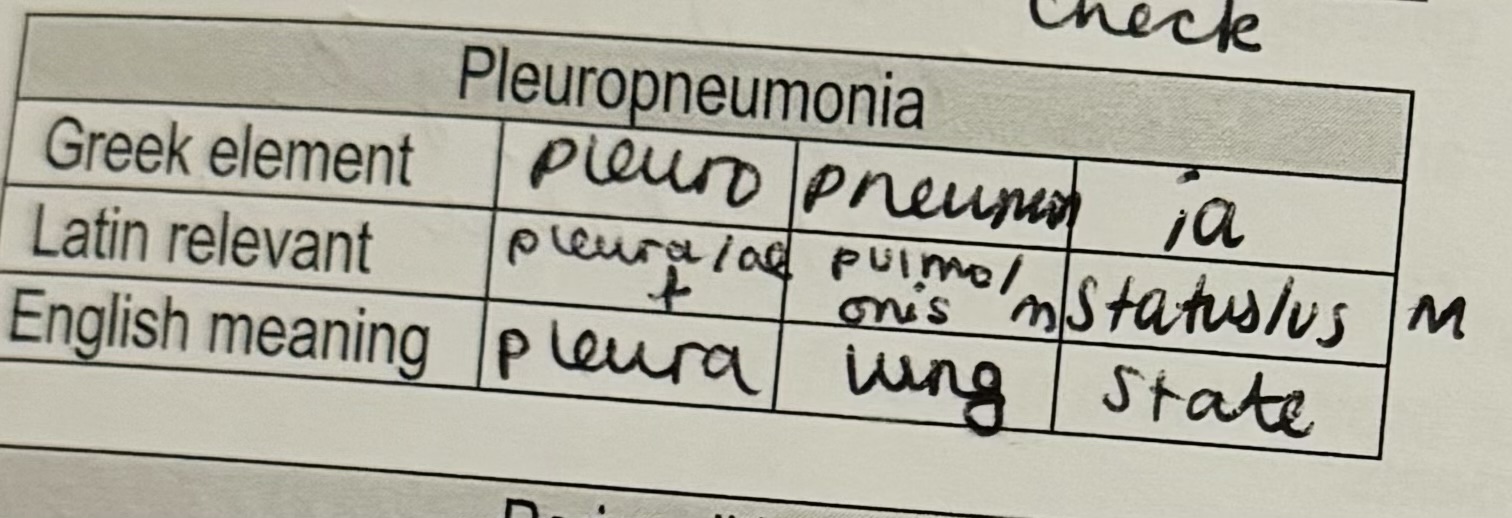 check
Pleuropneumonia
Greek element pleuro pneumon ia
Latin relevant pleura/ae f pulmo/onis m status/us M
English meaning pleura lung state